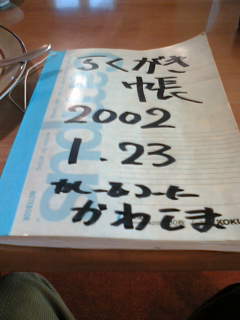 らくがき
帳
2002
1.23
カレー&コーヒー
かわしま
KOKU